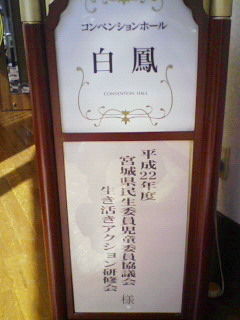 コンベンションホール
白鳳
CONVENTION HALL
平成22年度
宮城県民生委員児童委員協議会 様
生き活きアクション研修会